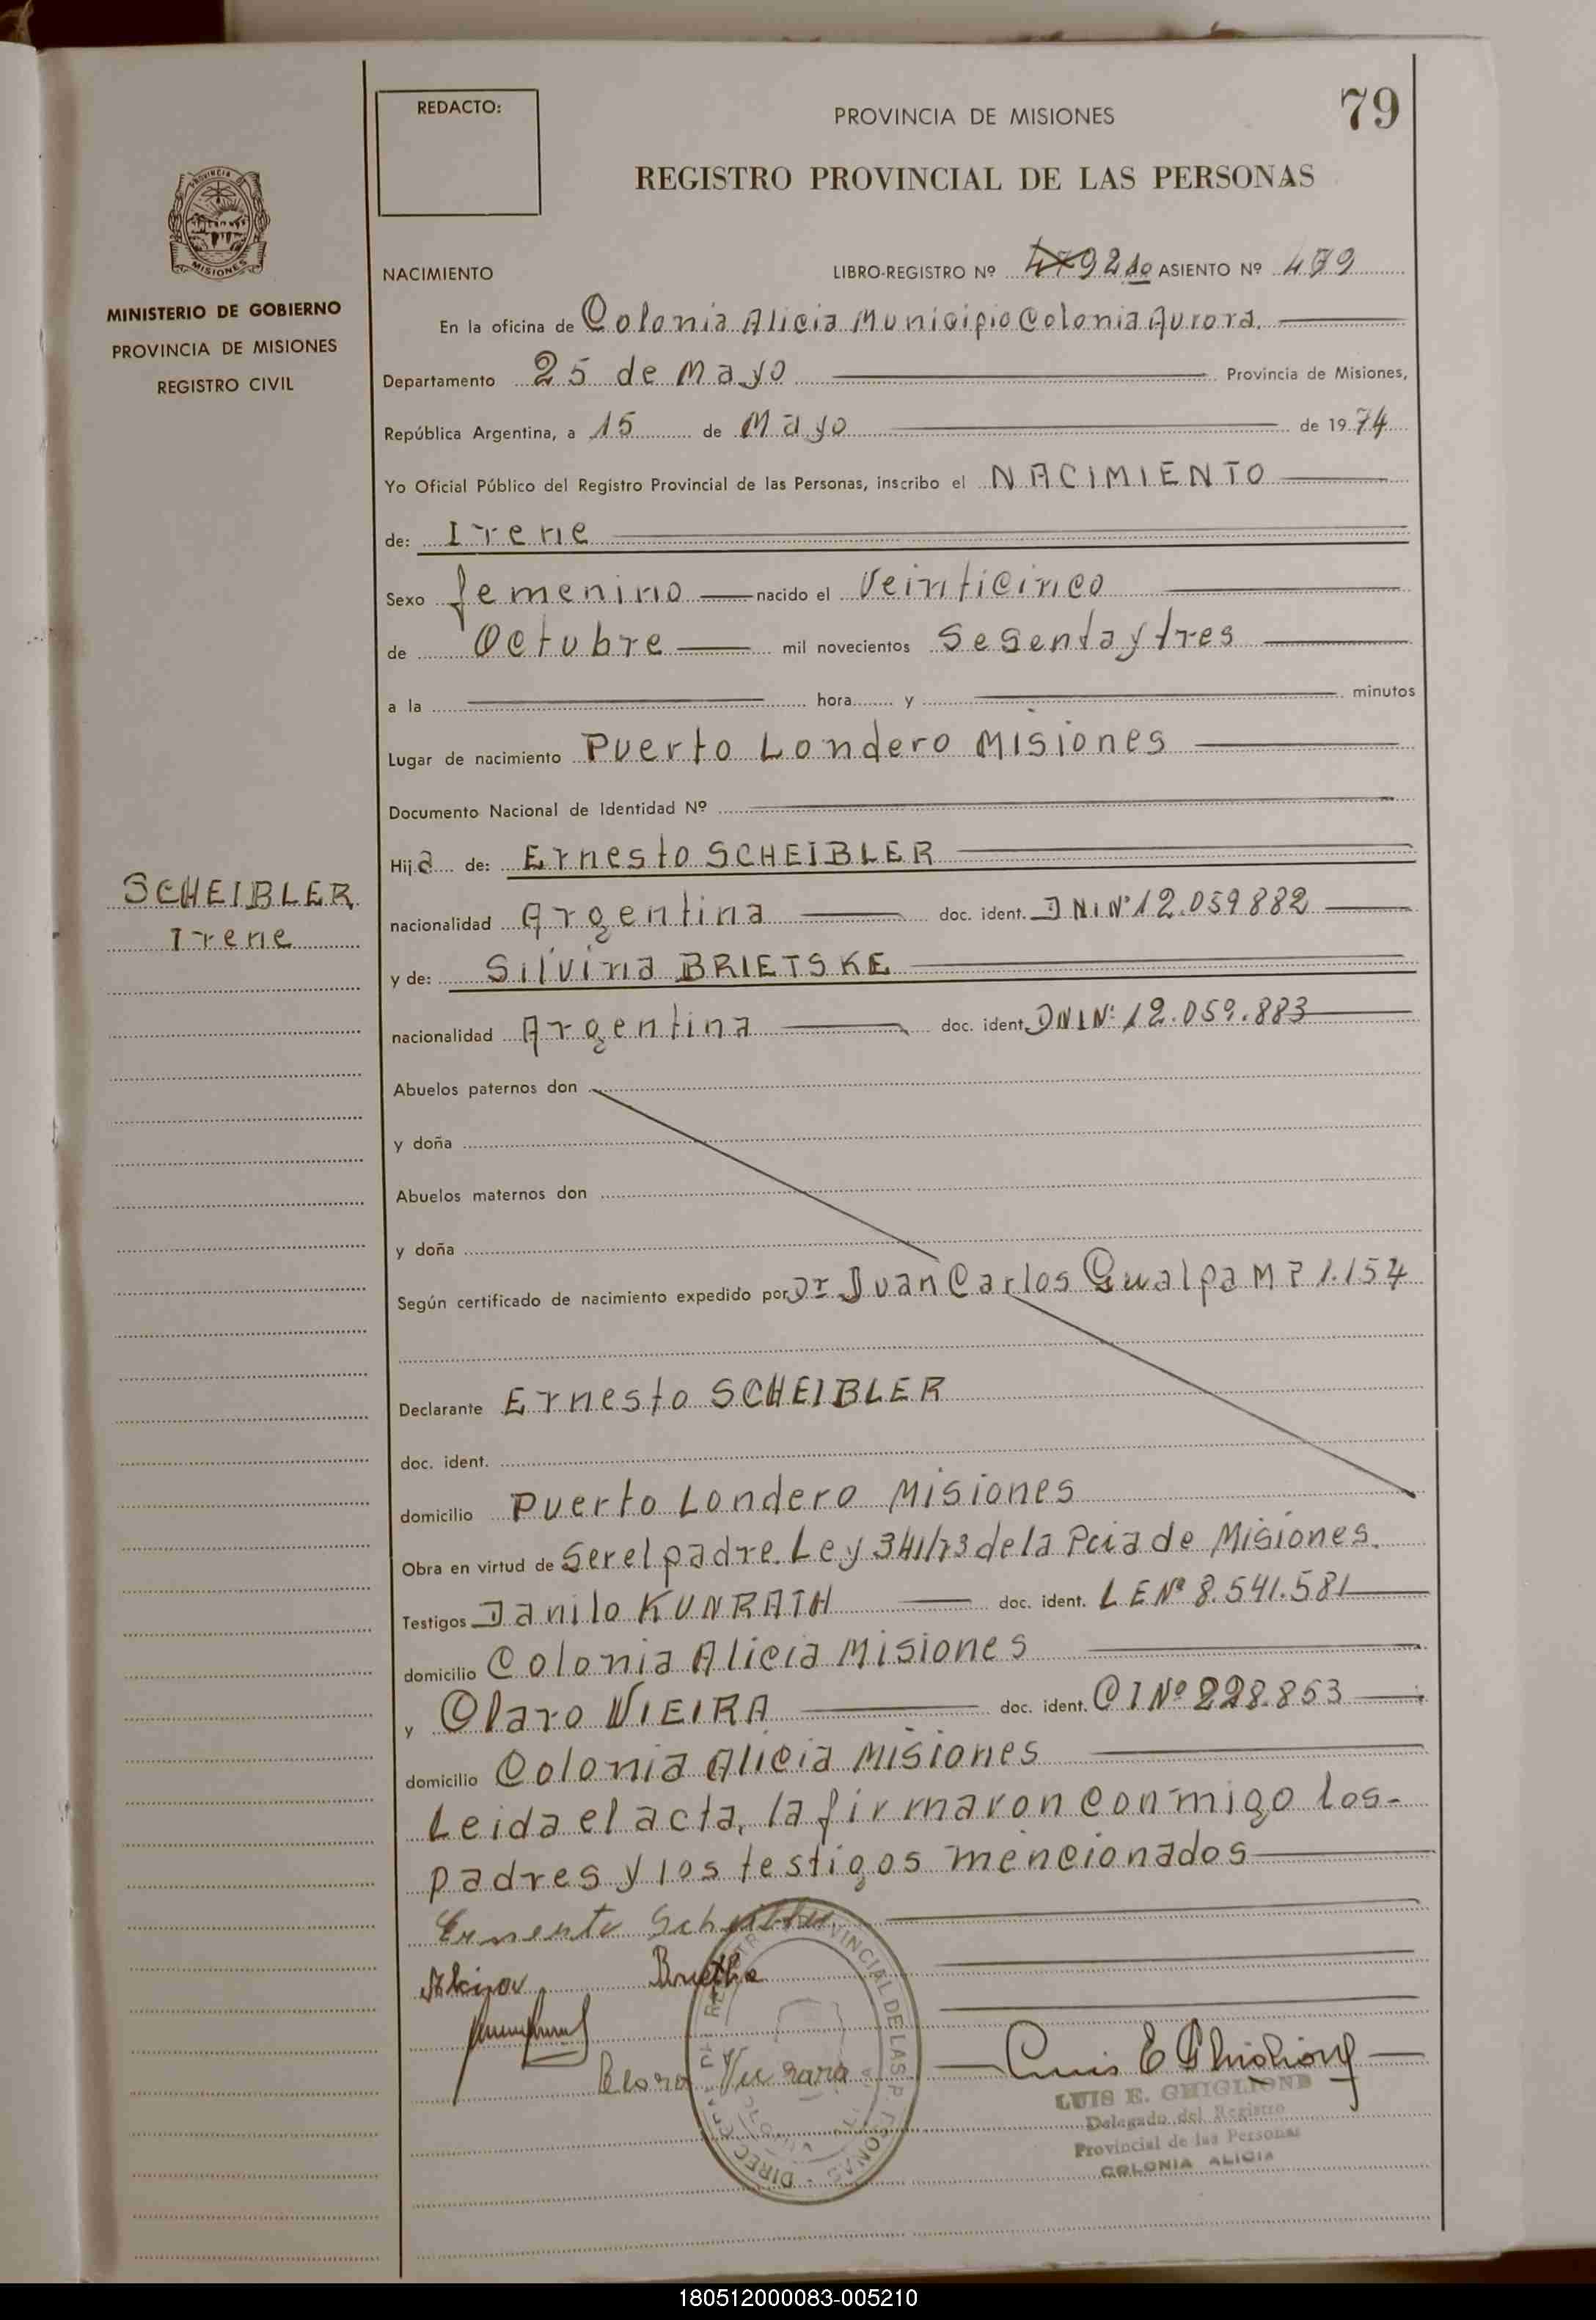 REDACTO:
PROVINCIA DE MISIONES
79
REGISTRO PROVINCIAL DE LAS PERSONAS
PROVINCIA DE
MISIONES
MINISTERIO DE GOBIERNO
PROVINCIA DE MISIONES
REGISTRO CIVIL
NACIMIENTO LIBRO-REGISTRO Nº 479 2do ASIENTO Nº 479
En la oficina de Colonia Alicia Municipio Colonia Aurora.
Departamento 25 de Mayo Provincia de Misiones,
República Argentina, a 15 de Mayo de 1974
Yo Oficial Público del Registro Provincial de las Personas, inscribo el NACIMIENTO
de: Irene
Sexo femenino nacido el Veinticinco
de Octubre mil novecientos Sesenta y tres
a la hora y minutos
Lugar de nacimiento Puerto Londero Misiones
Documento Nacional de Identidad Nº
Hija de: Ernesto SCHEIBLER
SCHEIBLER
Irene
nacionalidad Argentina doc. ident. DNI Nº 12.059882
y de: Silvina BRIETSKE
nacionalidad Argentina doc. ident. DNI Nº 12.059.883
Abuelos paternos don
y doña
Abuelos maternos don
y doña
Según certificado de nacimiento expedido por Dr Juan Carlos Gualpa MP 1.154
Declarante Ernesto SCHEIBLER
doc. ident.
domicilio Puerto Londero Misiones
Obra en virtud de Ser el padre. Ley 341/73 de la Pcia de Misiones.
Testigos Danilo KUNRATH doc. ident. LE Nº 8.541.581
domicilio Colonia Alicia Misiones
y Olavo VIEIRA doc. ident. CI Nº 228.853
domicilio Colonia Alicia Misiones
Leida el acta, la firmaron conmigo los-
padres y los testigos mencionados
Ernesto Scheibler
Luis E Ghiglione
LUIS E. GHIGLIONE
Delegado del Registro
Provincial de las Personas
COLONIA ALICIA
180512000083-005210